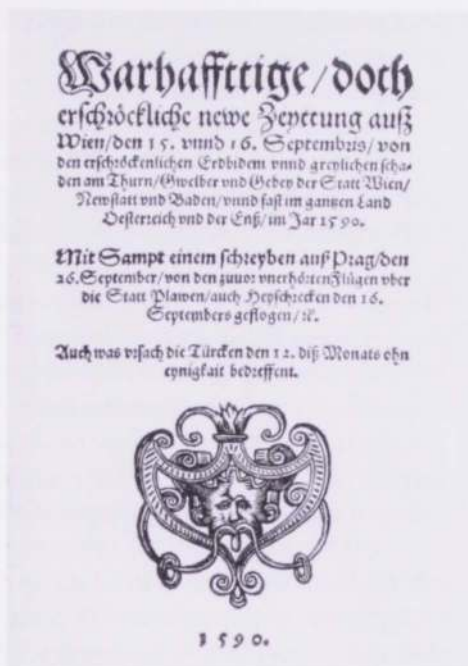 Warhaffttige/doch
erschröckliche newe Zeyttung auß
Wien/den 15. vnnd 16. Septembris/von
den erschröckenlichen Erdbidem vnnd greylichen scha-
den am Thurn/Gwelber vnd Gebey der Statt Wien/
Newstatt vnd Baden/vnnd fast im gantzen Land
Oesterreich vnd der Enß/im Jar 1590.
Mit Sampt einem schreyben auß Prag/den
26. September/von den zuuor vnerhörten Flügen vber
die Statt Plawen/auch Heyschrecken den 16.
Septembers geflogen/ꝛc.
Auch was vrsach die Türcken den 12. diß Monats ohn
eynigkait bedreffent.
1590.